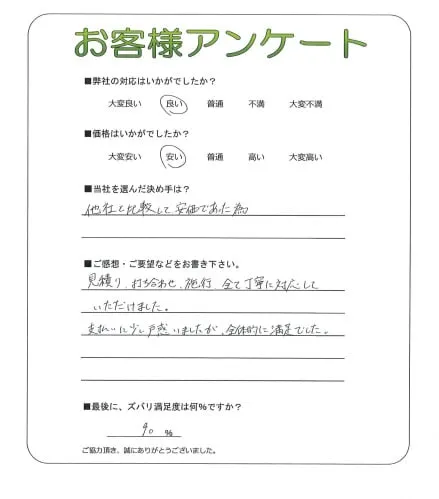 お客様アンケート
■弊社の対応はいかがでしたか？
大変良い 良い 普通 不満 大変不満
■価格はいかがでしたか？
大変安い 安い 普通 高い 大変高い
■当社を選んだ決め手は？
他社と比較して安価であった為
■ご感想・ご要望などをお書き下さい。
見積り、打ち合わせ、施行、全て丁寧に対応して
いただけました。
支払いに少し戸惑いましたが、全体的に満足でした。
■最後に、ズバリ満足度は何%ですか？
90 %
ご協力頂き、誠にありがとうございました。